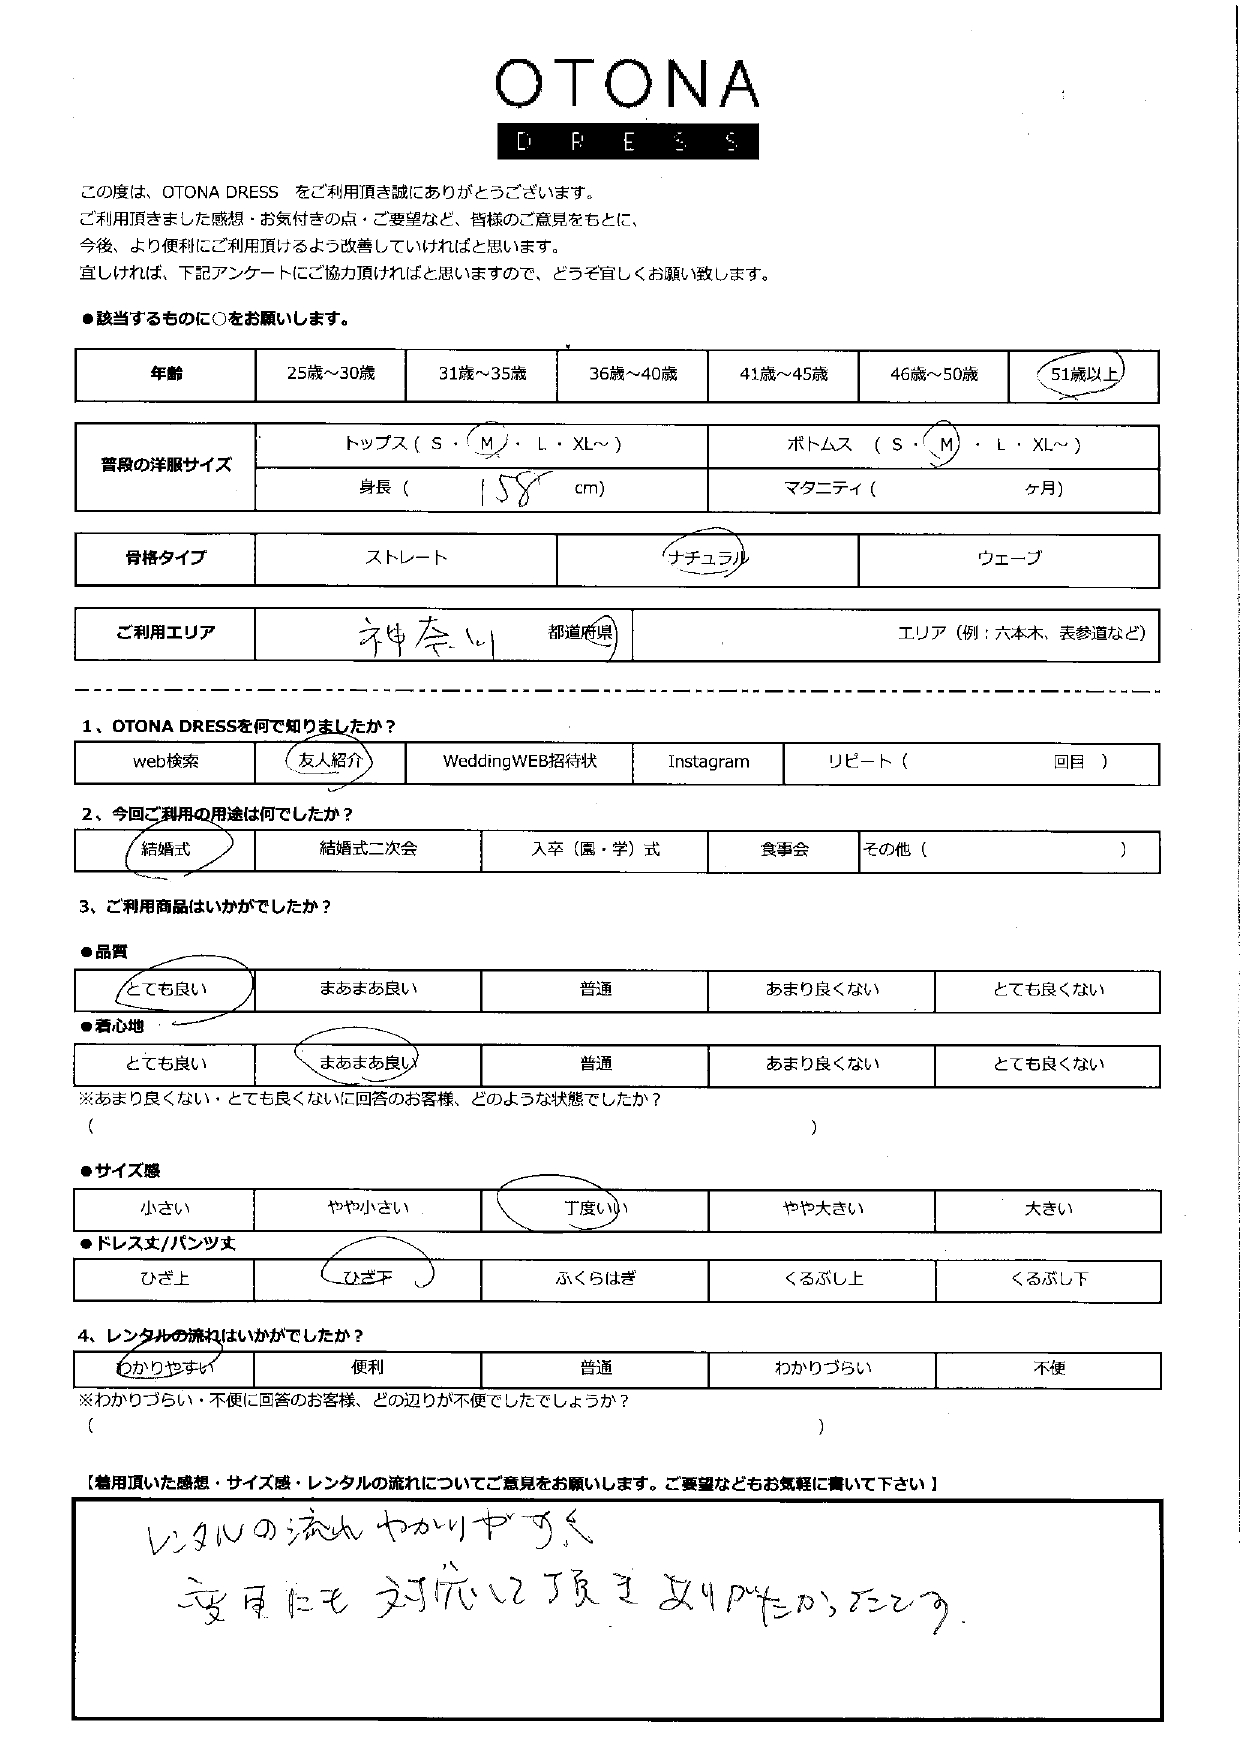 OTONA
DRESS
この度は、OTONA DRESS をご利用頂き誠にありがとうございます。
ご利用頂きました感想・お気付きの点・ご要望など、皆様のご意見をもとに、
今後、より便利にご利用頂けるよう改善していければと思います。
宜しければ、下記アンケートにご協力頂ければと思いますので、どうぞ宜しくお願い致します。
●該当するものに○をお願いします。
年齢 25歳～30歳 31歳～35歳 36歳～40歳 41歳～45歳 46歳～50歳 51歳以上
普段の洋服サイズ トップス ( S ・ M ・ L ・ XL～ ) ボトムス ( S ・ M ・ L ・ XL～ )
身長 ( 158 cm) マタニティ ( ヶ月)
骨格タイプ ストレート ナチュラル ウェーブ
ご利用エリア 神奈川 都道府県 エリア（例：六本木、表参道など）
1、OTONA DRESSを何で知りましたか？
web検索 友人紹介 WeddingWEB招待状 Instagram リピート ( 回目 )
2、今回ご利用の用途は何でしたか？
結婚式 結婚式二次会 入卒（園・学）式 食事会 その他 ( )
3、ご利用商品はいかがでしたか？
●品質
とても良い まあまあ良い 普通 あまり良くない とても良くない
●着心地
とても良い まあまあ良い 普通 あまり良くない とても良くない
※あまり良くない・とても良くないに回答のお客様、どのような状態でしたか？
( )
●サイズ感
小さい やや小さい 丁度いい やや大きい 大きい
●ドレス丈/パンツ丈
ひざ上 ひざ下 ふくらはぎ くるぶし上 くるぶし下
4、レンタルの流れはいかがでしたか？
わかりやすい 便利 普通 わかりづらい 不便
※わかりづらい・不便に回答のお客様、どの辺りが不便でしたでしょうか？
( )
【着用頂いた感想・サイズ感・レンタルの流れについてご意見をお願いします。ご要望などもお気軽に書いて下さい 】
レンタルの流れ わかりやすく
変更にも 対応して頂き ありがたかったです.